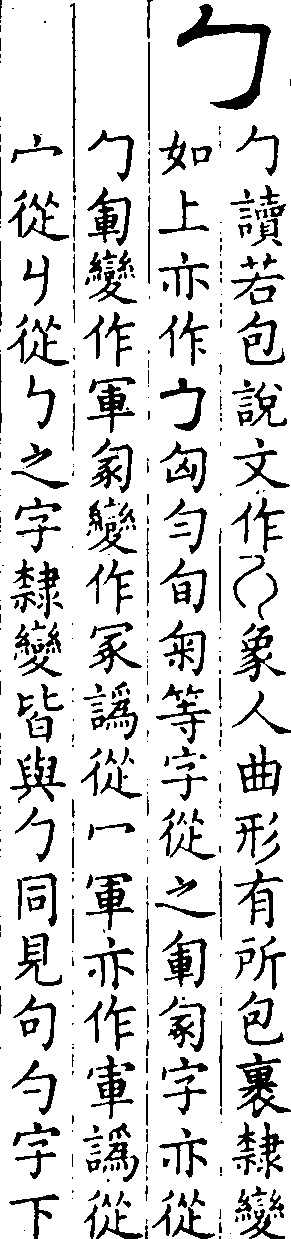 勹
勹讀若包說文作象人曲形有所包裹隸變
如上亦作𠃌匈勻旬匊等字從之字亦從
勹變作軍變作冢譌從冖軍亦作譌從
宀從丩從勺之字隸變皆與勹同見句勺字下